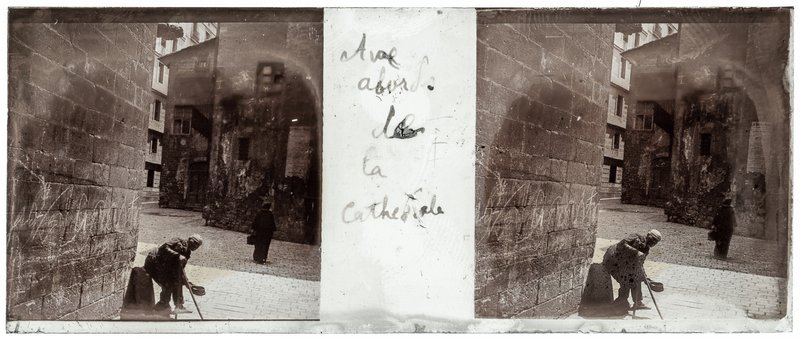 Aux
abords
de
la
Cathédrale